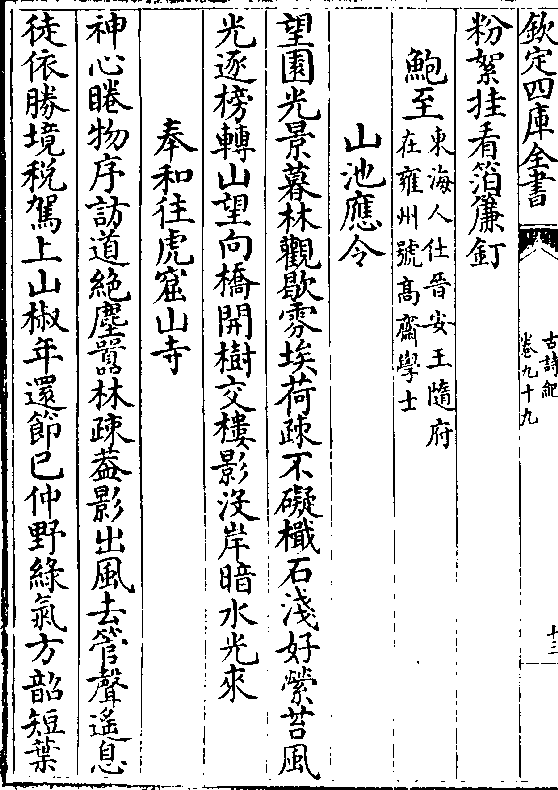 欽定四庫全書
古詩紀
卷九十九
十三
粉絮挂看箔簾釘
鮑至東海人仕晉安王隨府
在雍州號髙齋學士
山池應令
望園光景暮林觀歇雰埃荷疎不礙檝石淺好縈苔風
光逐榜轉山望向橋開樹交樓影沒岸暗水光來
奉和往虎窟山寺
神心睠物序訪道絶塵嚻林疎葢影出風去管聲遥息
徒依勝境稅駕上山椒年還節已仲野綠氣方韶短葉